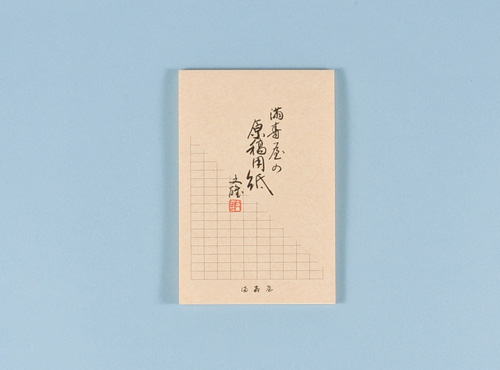 満寿屋の
原稿用紙
満寿屋